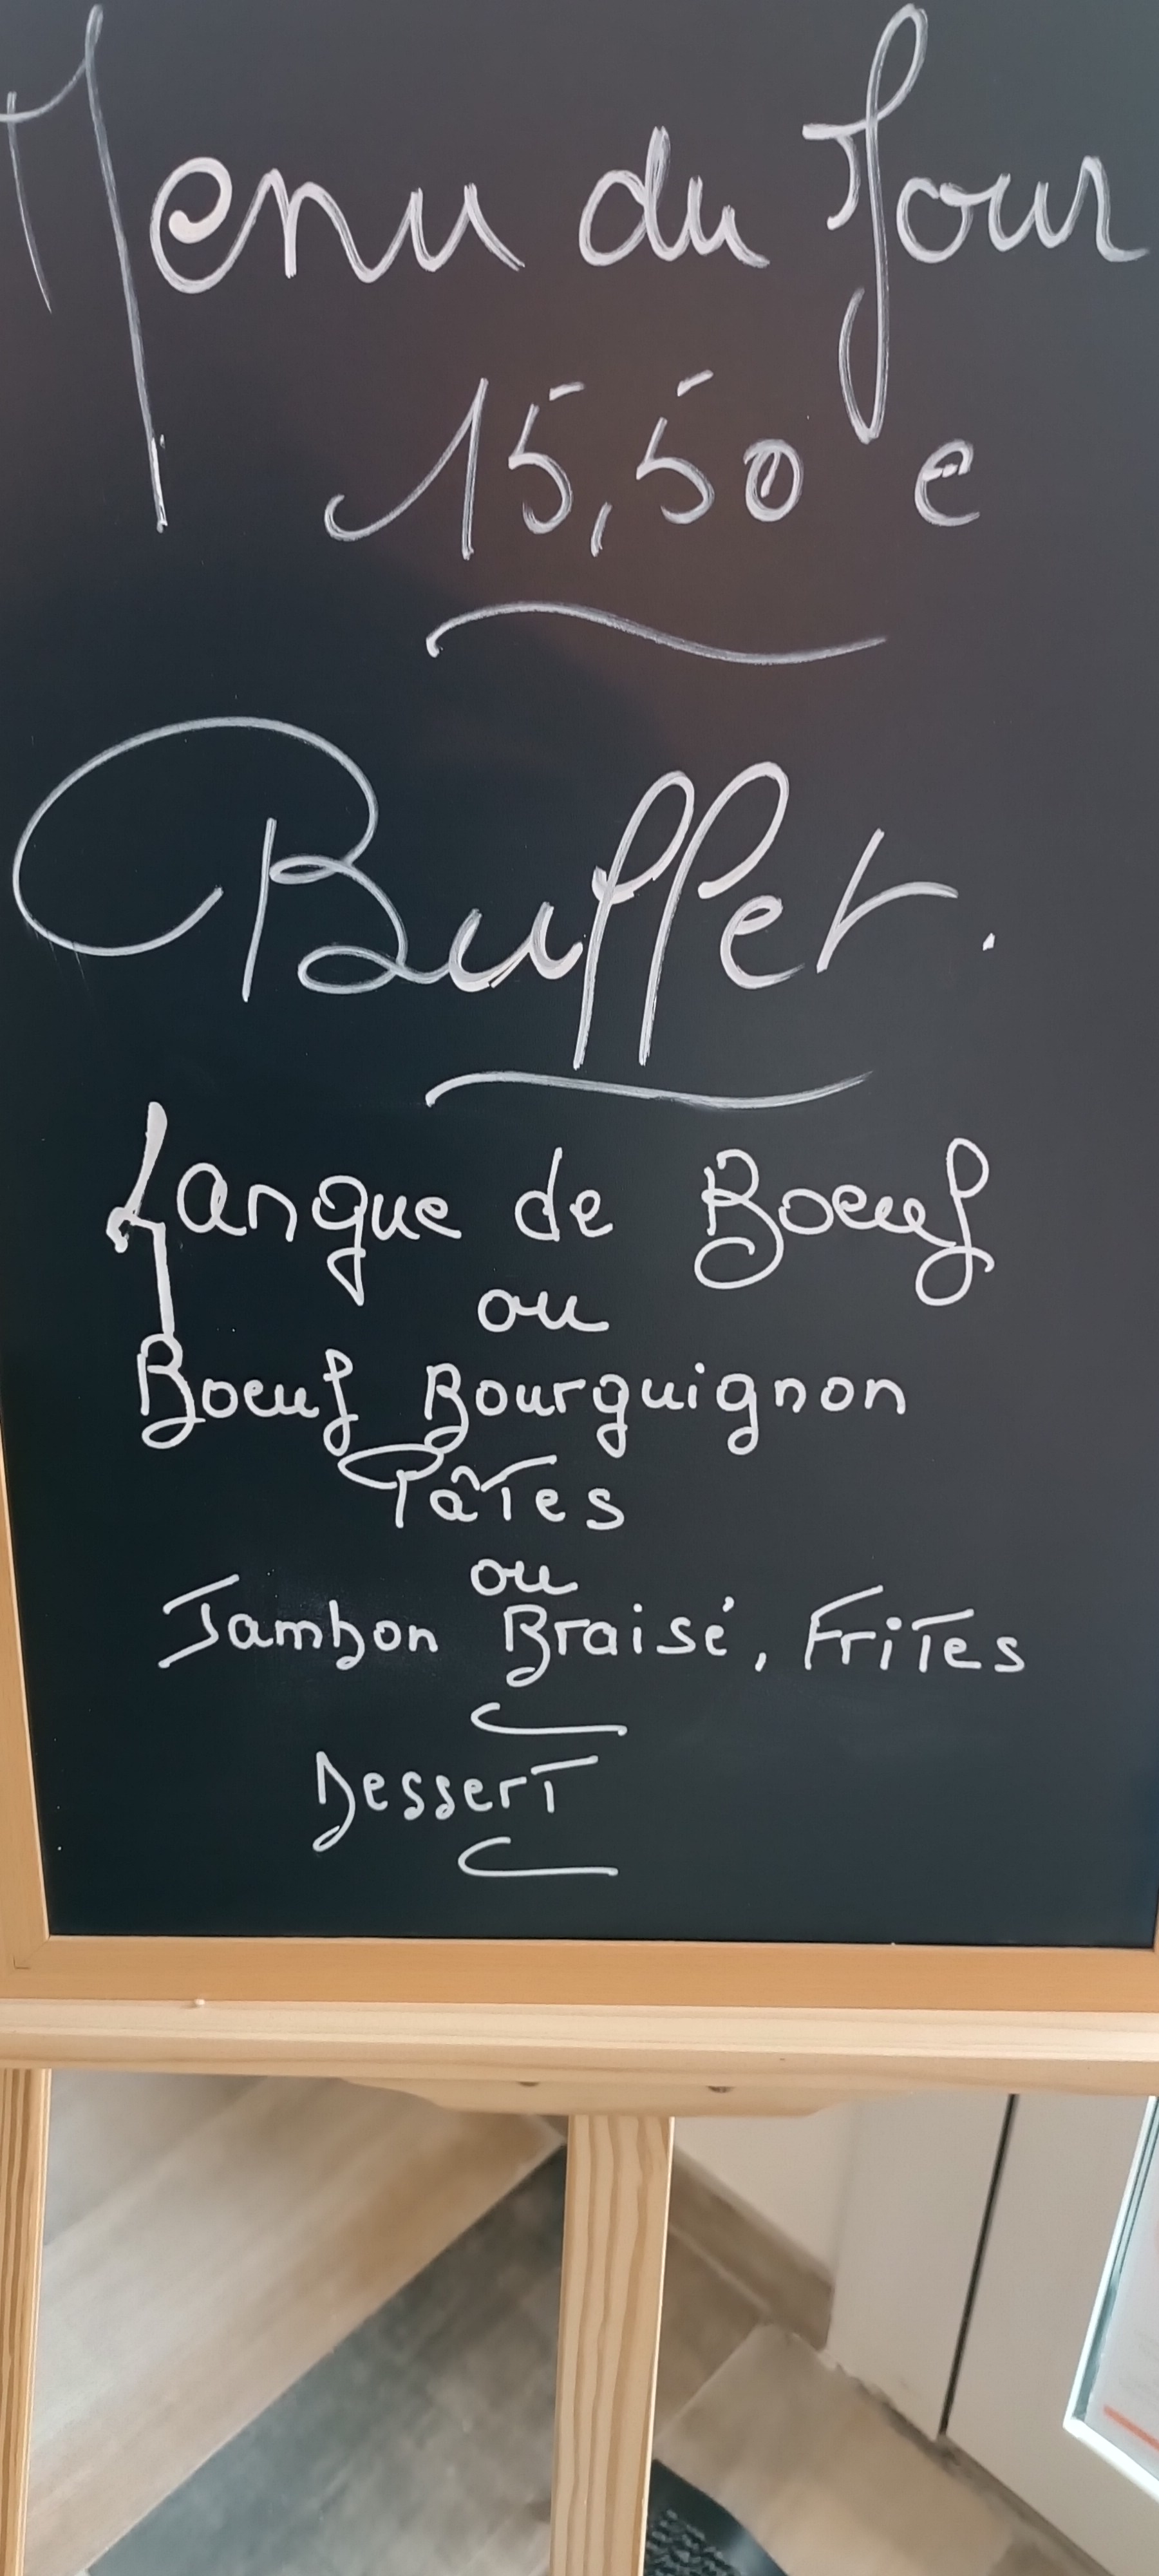 Menu du Jour
15,50 €
Buffet.
Langue de Boeuf
ou
Boeuf Bourguignon
Pâtes
ou
Jambon Braisé, Frites
Dessert